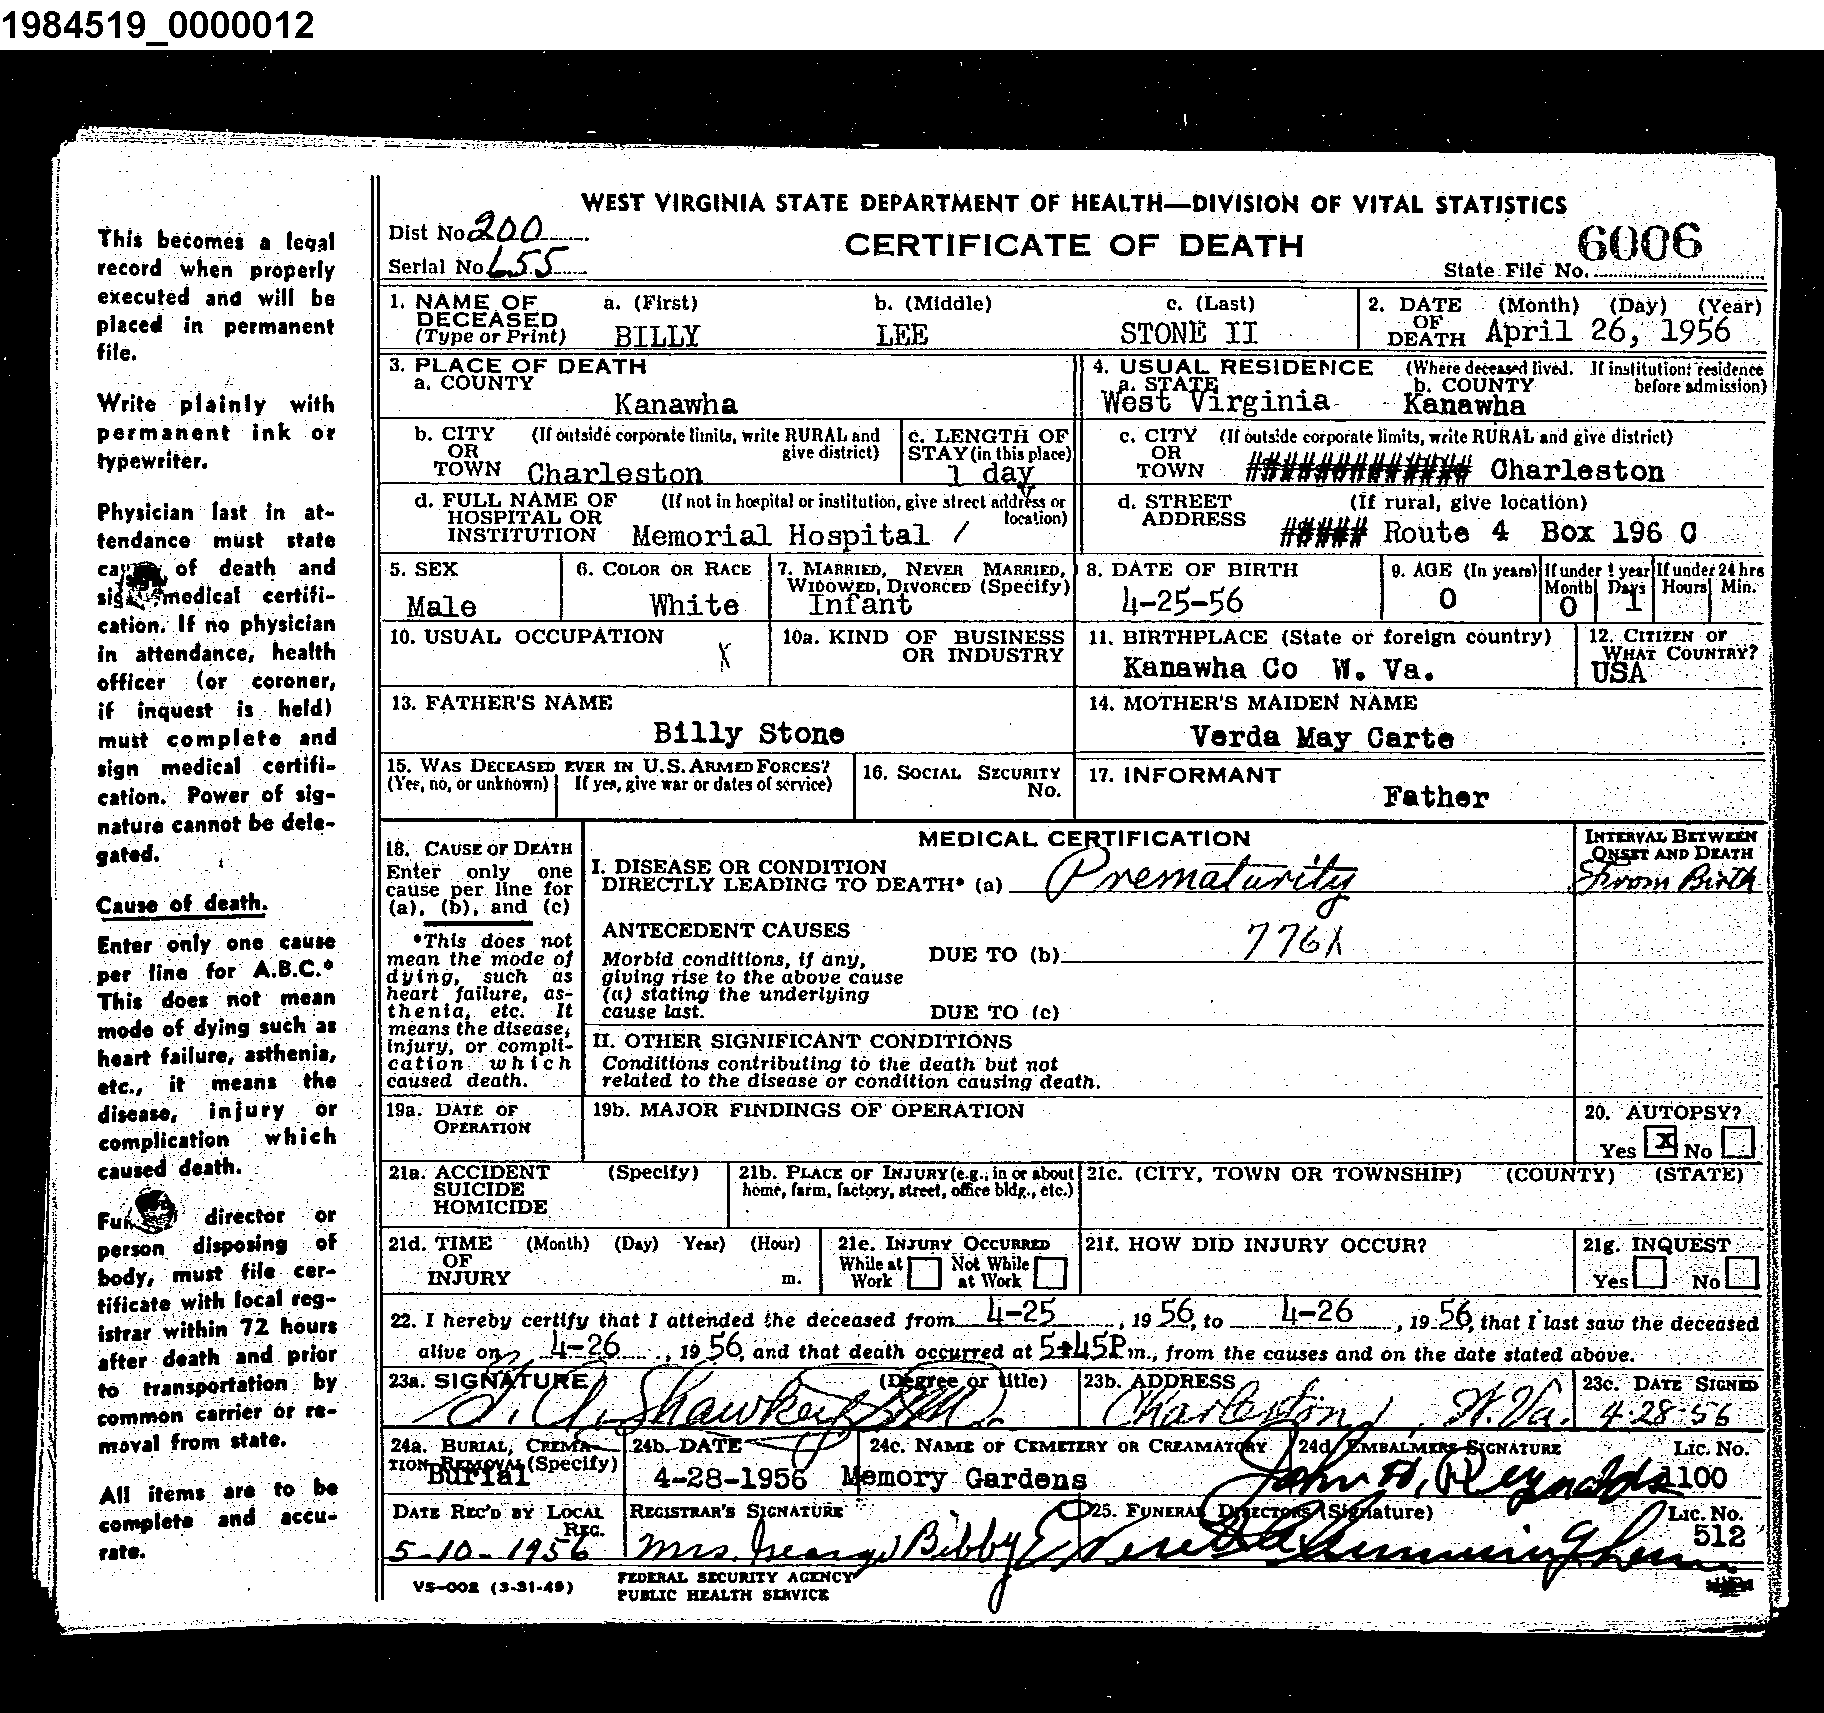 1984519_0000012
This becomes a legal
record when properly
executed and will be
placed in permanent
file.
Write plainly with
permanent ink or
typewriter.
Physician last in at-
tendance must state
of death and
medical certifi-
cation. If no physician
in attendance, health
officer (or coroner,
if inquest is held)
must complete and
sign medical certifi-
cation. Power of sig-
nature cannot be dele-
gated.
Cause of death.
Enter only one cause
per line for A.B.C.*
This does not mean
mode of dying such as
heart failure, asthenia,
etc., it means the
disease, injury or
complication which
caused death.
director or
person disposing of
body, must file cer-
tificate with local reg-
istrar within 72 hours
after death and prior
to transportation by
common carrier or re-
moval from state.
All items are to be
complete and accu-
rate.
WEST VIRGINIA STATE DEPARTMENT OF HEALTH—DIVISION OF VITAL STATISTICS
Dist No. 200
CERTIFICATE OF DEATH
6006
Serial No. 655
State File No.
1. NAME OF DECEASED (Type or Print) a. (First) b. (Middle) c. (Last)
BILLY LEE STONE II
2. DATE OF DEATH (Month) (Day) (Year)
April 26, 1956
3. PLACE OF DEATH
a. COUNTY
Kanawha
4. USUAL RESIDENCE (Where deceased lived. If institution: residence before admission)
a. STATE b. COUNTY
West Virginia Kanawha
b. CITY OR TOWN (If outside corporate limits, write RURAL and give district)
Charleston
c. LENGTH OF STAY (in this place)
1 day
c. CITY OR TOWN (If outside corporate limits, write RURAL and give district)
############# Charleston
d. FULL NAME OF HOSPITAL OR INSTITUTION (If not in hospital or institution, give street address or location)
Memorial Hospital /
d. STREET ADDRESS (If rural, give location)
##### Route 4 Box 196 C
5. SEX
Male
6. COLOR OR RACE
White
7. MARRIED, NEVER MARRIED, WIDOWED, DIVORCED (Specify)
Infant
8. DATE OF BIRTH
4-25-56
9. AGE (In years)
0
If under 1 year If under 24 hrs
Month Days Hours Min.
0 1
10. USUAL OCCUPATION
X
10a. KIND OF BUSINESS OR INDUSTRY
11. BIRTHPLACE (State or foreign country)
Kanawha Co W. Va.
12. CITIZEN OF WHAT COUNTRY?
USA
13. FATHER'S NAME
Billy Stone
14. MOTHER'S MAIDEN NAME
Verda May Carte
15. WAS DECEASED EVER IN U.S. ARMED FORCES?
(Yes, no, or unknown) If yes, give war or dates of service)
16. SOCIAL SECURITY No.
17. INFORMANT
Father
18. CAUSE OF DEATH
Enter only one
cause per line for
(a), (b), and (c)
*This does not
mean the mode of
dying, such as
heart failure, as-
thenia, etc. It
means the disease,
injury, or compli-
cation which
caused death.
MEDICAL CERTIFICATION
INTERVAL BETWEEN ONSET AND DEATH
I. DISEASE OR CONDITION
DIRECTLY LEADING TO DEATH* (a) Prematurity
From Birth
ANTECEDENT CAUSES
Morbid conditions, if any,
giving rise to the above cause
(a) stating the underlying
cause last.
DUE TO (b) 776X
DUE TO (c)
II. OTHER SIGNIFICANT CONDITIONS
Conditions contributing to the death but not
related to the disease or condition causing death.
19a. DATE OF OPERATION
19b. MAJOR FINDINGS OF OPERATION
20. AUTOPSY?
Yes X No
21a. ACCIDENT SUICIDE HOMICIDE (Specify)
21b. PLACE OF INJURY (e.g., in or about home, farm, factory, street, office bldg., etc.)
21c. (CITY, TOWN OR TOWNSHIP) (COUNTY) (STATE)
21d. TIME OF INJURY (Month) (Day) Year) (Hour) m.
21e. INJURY OCCURRED
While at Work Not While at Work
21f. HOW DID INJURY OCCUR?
21g. INQUEST
Yes No
22. I hereby certify that I attended the deceased from 4-25, 1956, to 4-26, 1956, that I last saw the deceased
alive on 4-26, 1956, and that death occurred at 5:45P m., from the causes and on the date stated above.
23a. SIGNATURE (Degree or title)
Shawkey
23b. ADDRESS
Charleston, W. Va.
23c. DATE SIGNED
4-28-56
24a. BURIAL, CREMATION REMOVAL (Specify)
Burial
24b. DATE
4-28-1956
24c. NAME OF CEMETERY OR CREAMATORY
Memory Gardens
24d. EMBALMERS SIGNATURE Lic. No.
John H. Reynolds 1100
DATE REC'D BY LOCAL REG.
5-10-1956
REGISTRAR'S SIGNATURE
Mrs. George Bibby
25. FUNERAL DIRECTORS (Signature) Lic. No.
Cunningham 512
VS-002 (3-31-49)
FEDERAL SECURITY AGENCY
PUBLIC HEALTH SERVICE